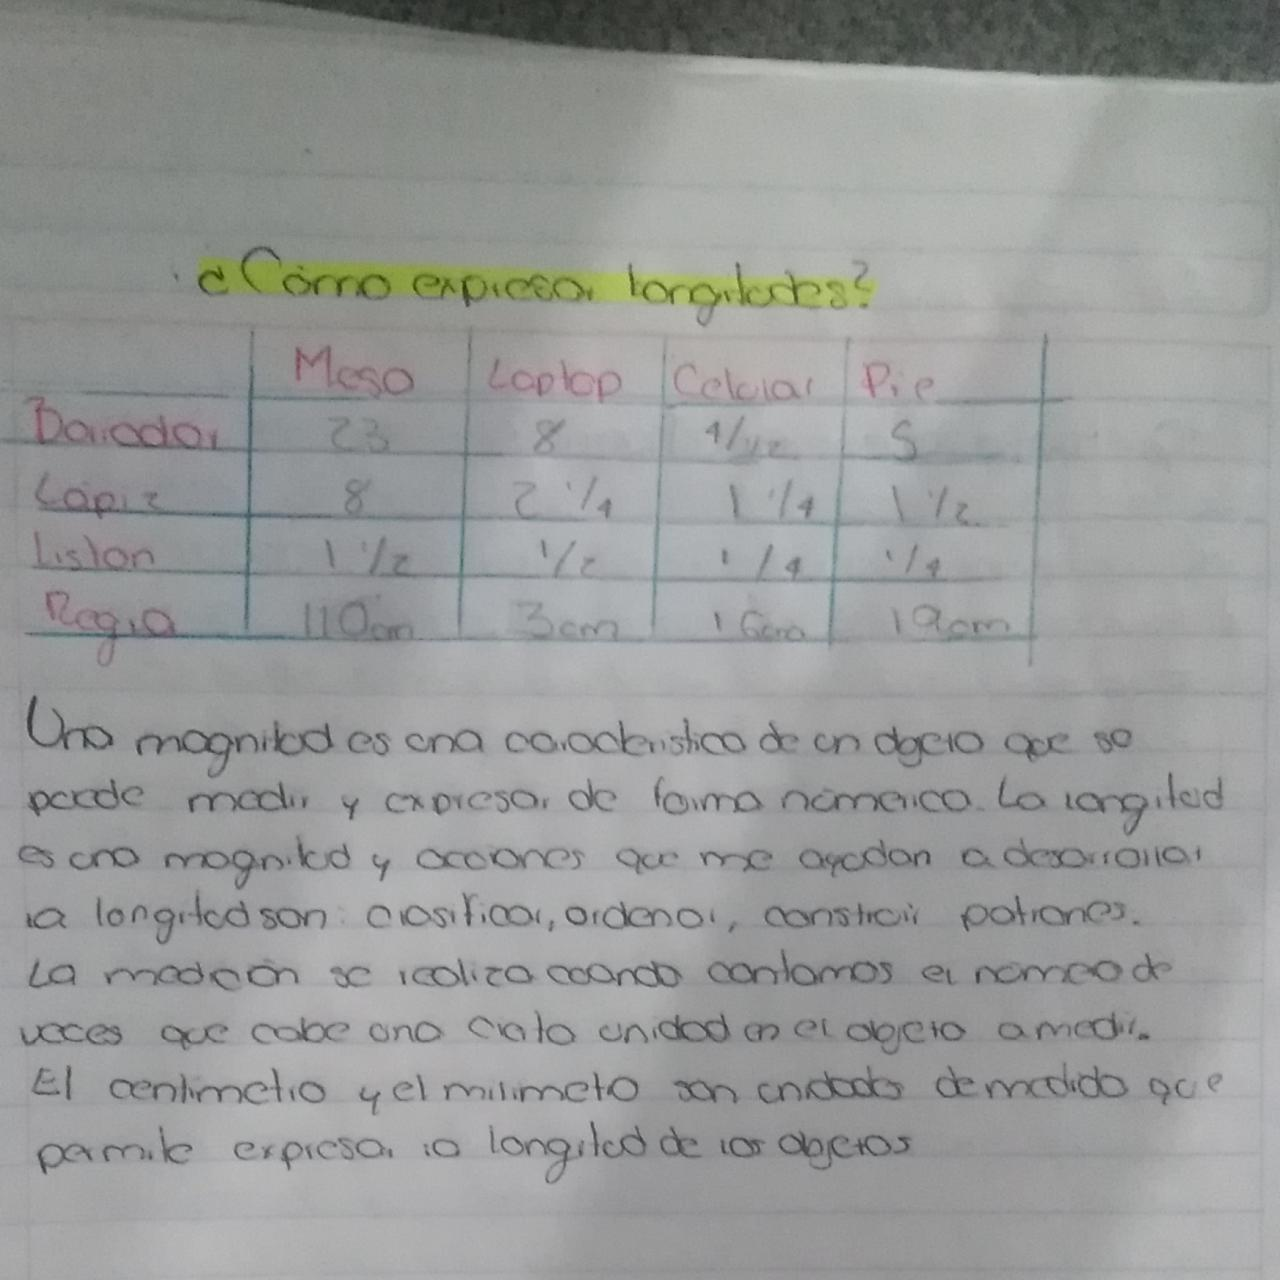 ¿Cómo expresar longitudes?
Mesa Laptop Celular Pie
Borrador 23 8 4 1/2 5
Lápiz 8 2 1/4 1 1/4 1 1/2
Liston 1 1/2 1/2 1/4 1/4
Regla 110cm 3cm 16cm 19cm
Una magnitud es una caracteristica de un objeto que se
puede medir y expresar de forma numerica. La longitud
es una magnitud y acciones que me ayudan a desarrollar
la longitud son: clasificar, ordenar, construir patrones.
La medición se realiza cuando contamos el numero de
veces que cabe una cierta unidad en el objeto a medir.
El centimetro y el milimetro son unidades de medida que
permite expresar la longitud de los objetos